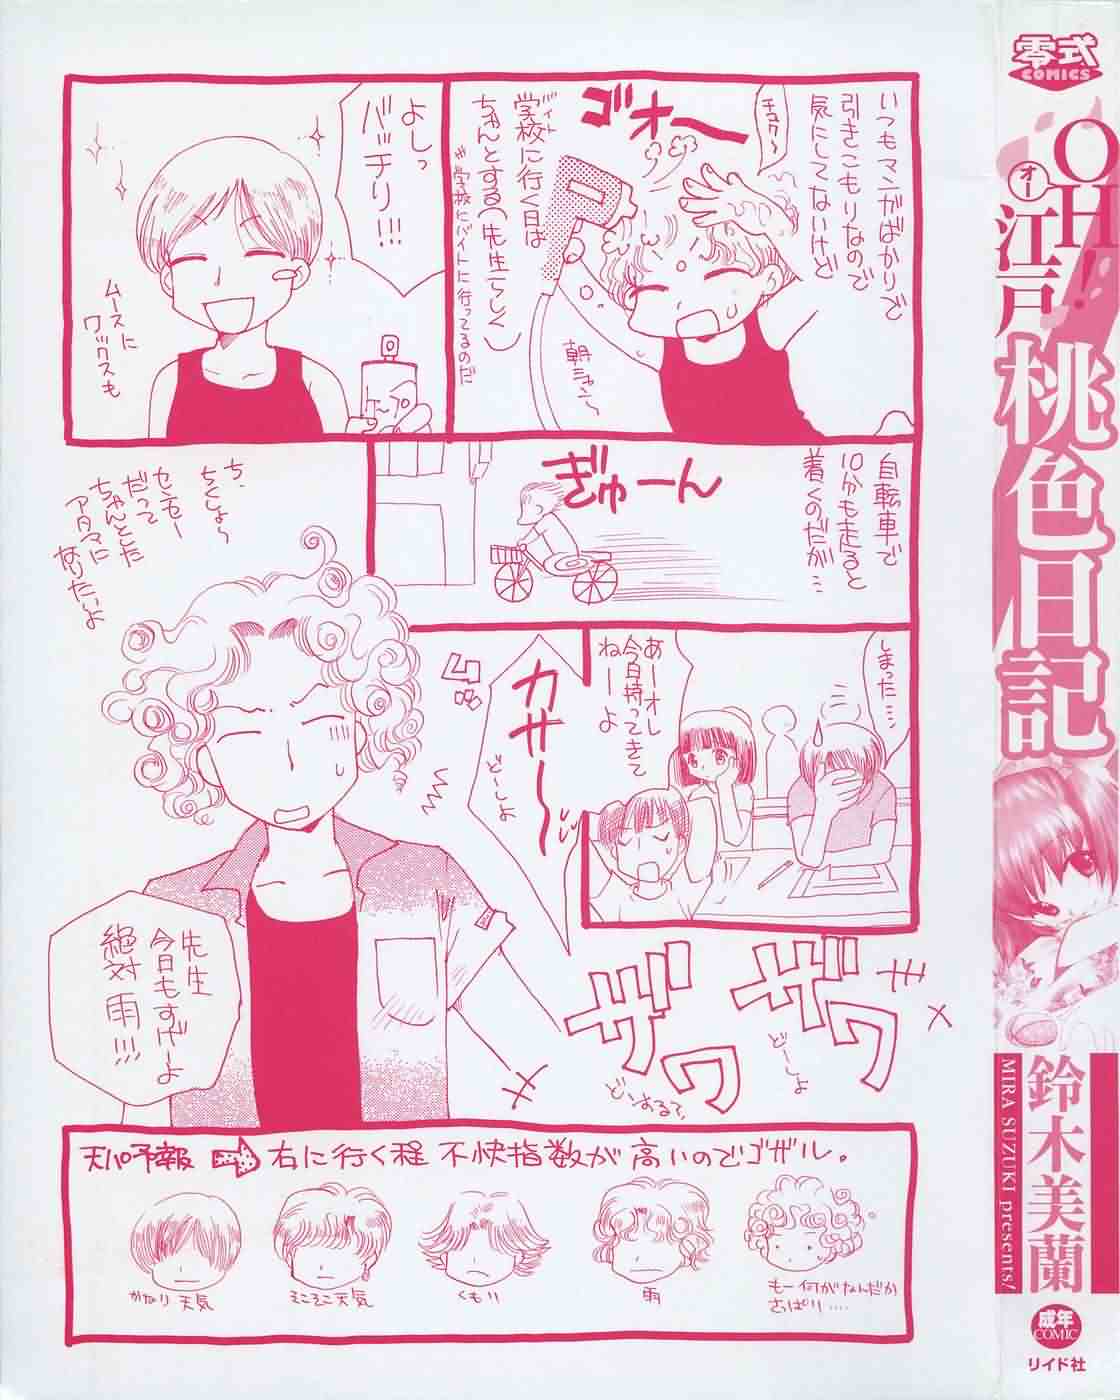 いつもマンガばかりで
引きこもりなので
気にしてないけど
チュク〜
ゴオー
バイト
学校に行く日は
ちゃんとする(先生らしく)
※学校にバイトに行ってるのだ
朝シャン〜
よしっ
バッチリ!!!
ケープ
ムースに
ワックスも
自転車で
10分も走ると
着くのだが…
ぎゅーん
しまった…
あーオレ
今日持ってきて
ねーよ
カサ〜
どーしよ
ち、
ちくしょ〜
センセー
だって
ちゃんとした
アタマに
なりたいよ
先生
今日もすげーよ
絶対雨!!!
ザワ
ザワ
どーしよ
どうするで
天パ予報 → 右に行く程 不快指数が高いのでゴザル。
かなり天気
そこそこ天気
くもり
雨
もー何がなんだか
さっぱり....
零式
COMICS
OH!
オー
江戸桃色日記
鈴木美蘭
MIRA SUZUKI presents/
成年
COMIC
リイド社